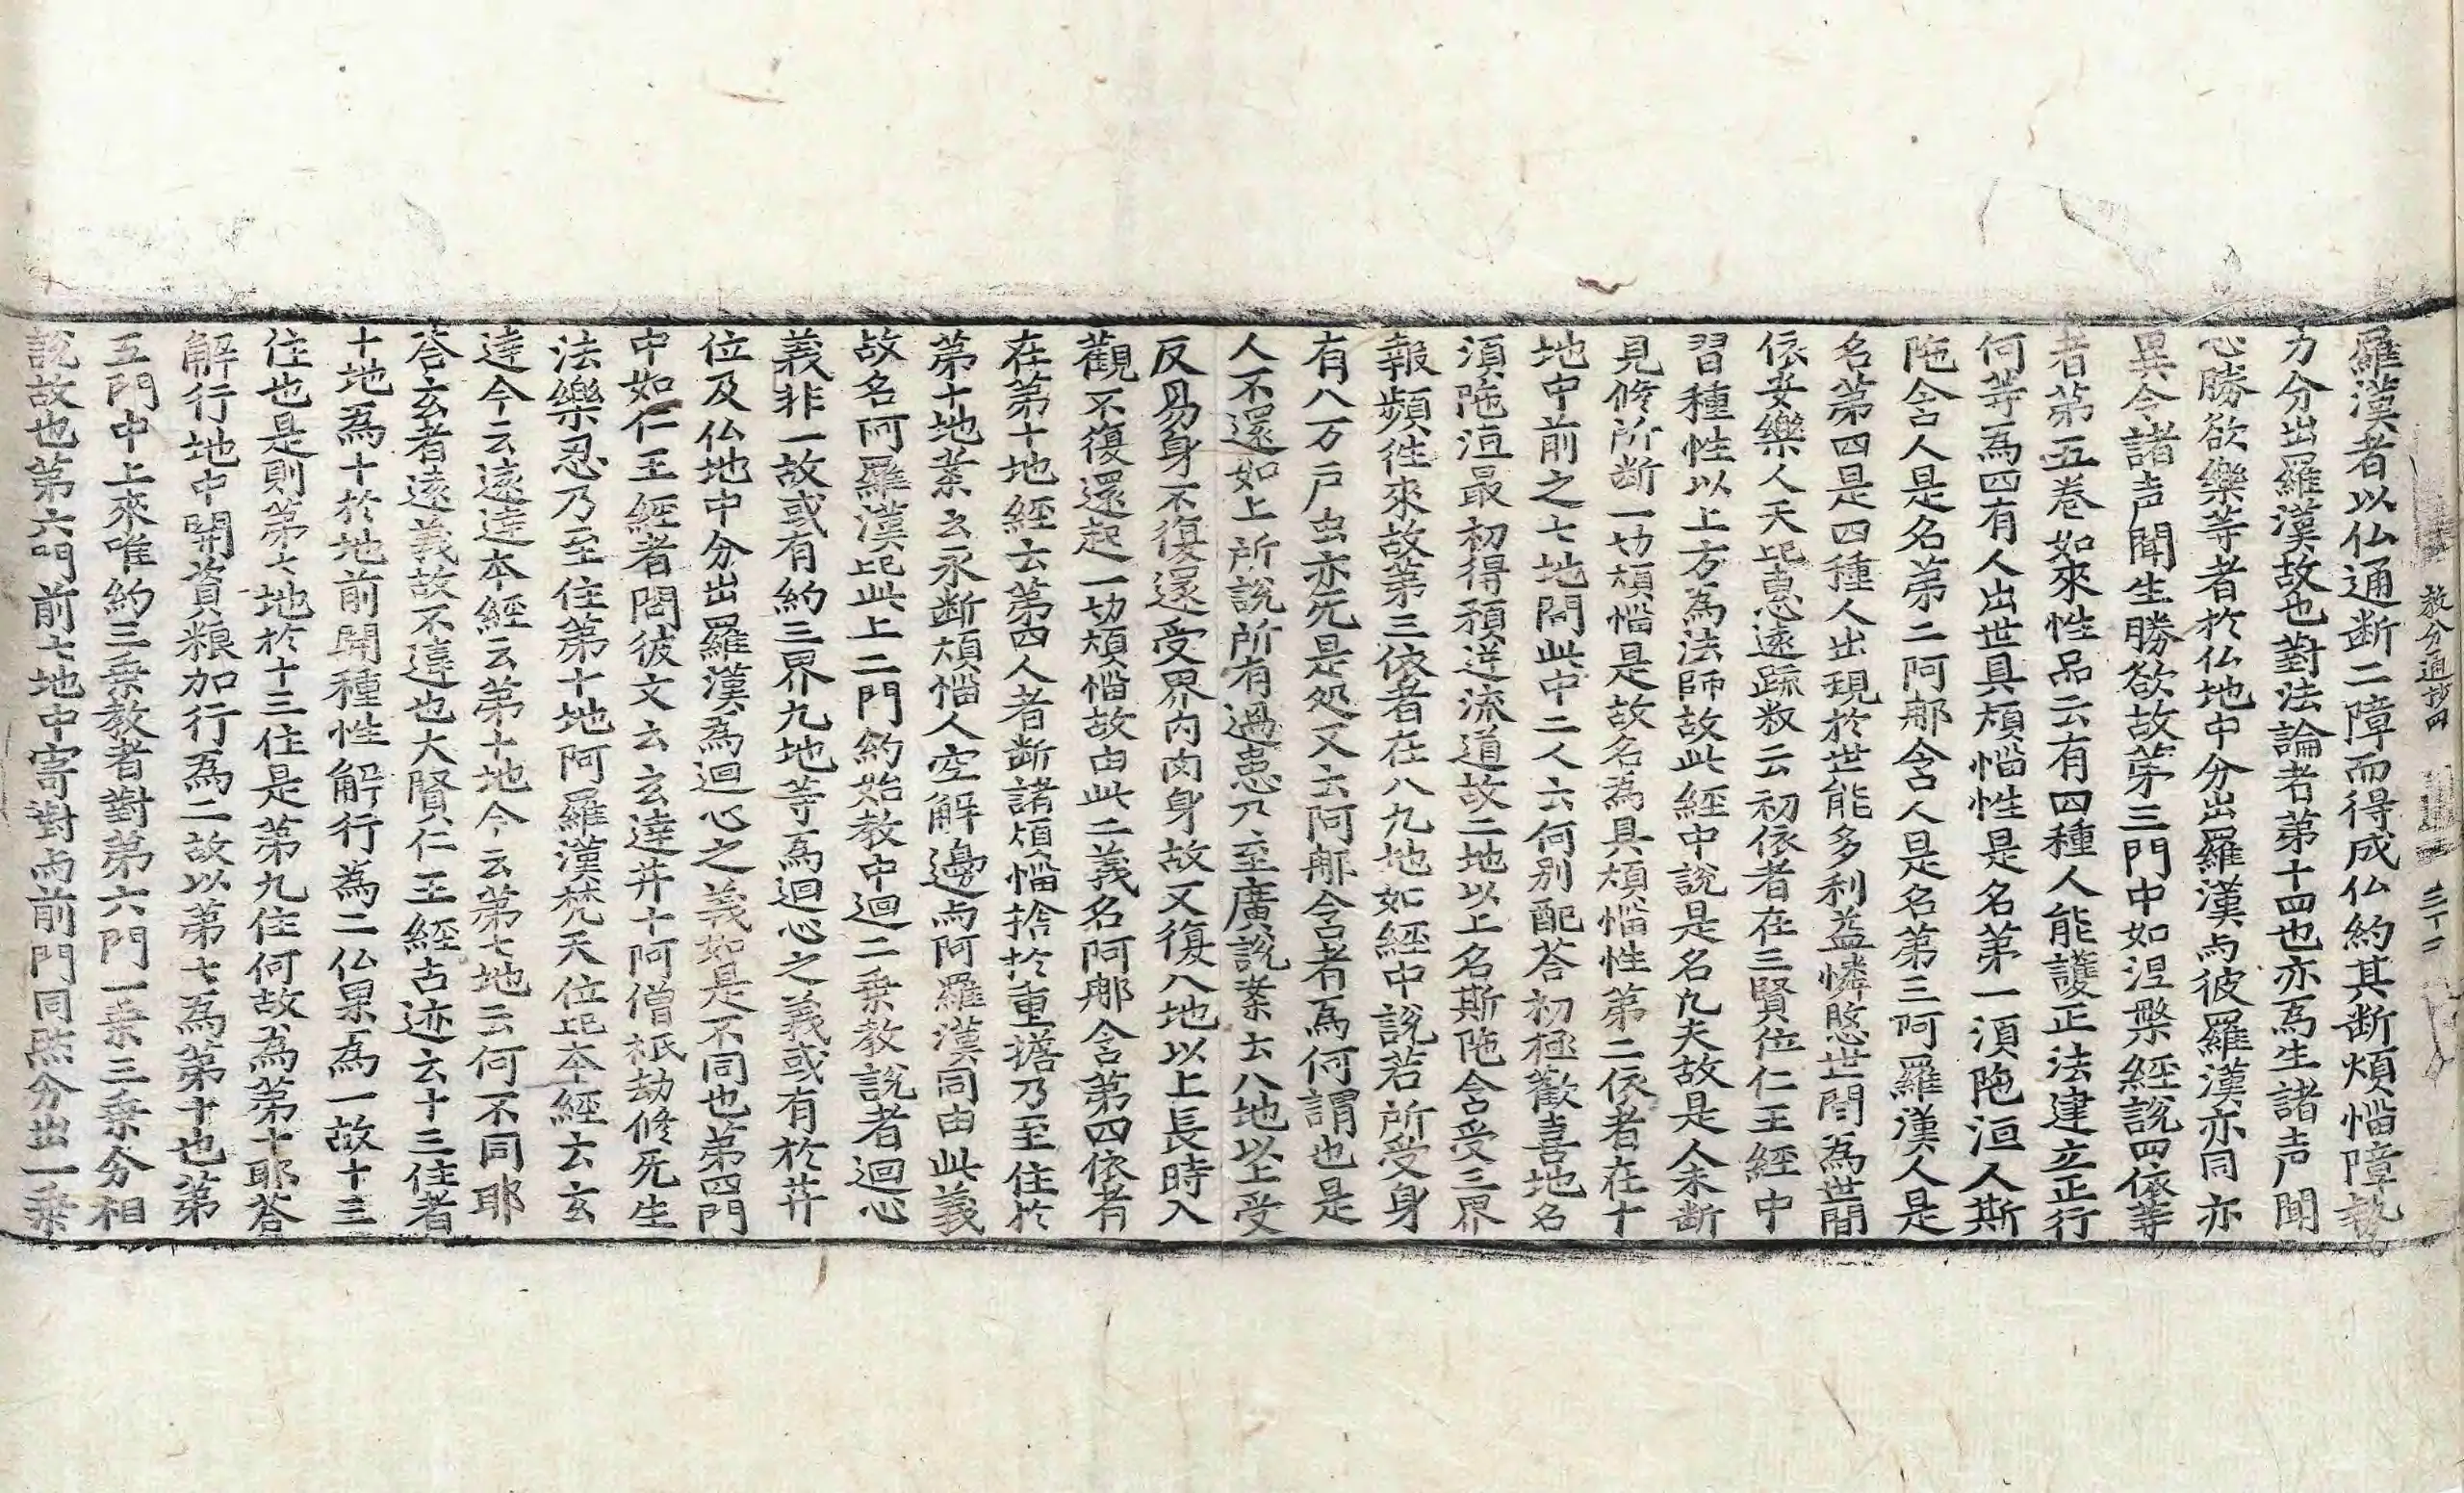 羅漢者以仏通断二障而得成仏約其断煩惱障勢
力分出羅漢故也對法論者第十四也亦為生諸声聞
心勝欲樂等者於仏地中分出羅漢与彼羅漢亦同亦
異今諸声聞生勝欲故第三門中如涅槃經說四依等
者第五卷如來性品云有四種人能護正法建立正行
何等為四有人出世具煩惱性是名第一湏陁洹人斯
陁含人是名第二阿那含人是名第三阿羅漢人是
名第四是四種人出現於世能多利益憐愍世間為世間
依安樂人天記惠遠䟽叙云初依者在三賢位仁王經中
習種性以上方為法師故此經中說是名凡夫故是人未断
見修所断一切煩惱是故名為具煩惱性第二依者在十
地中前之七地問此中二人云何別配荅初極歡喜地名
湏陁洹最初得預逆流道故二地以上名斯陁含受三界
報頻徃來故第三依者在八九地如經中說若所受身
有八万戸虫亦旡是処又云阿那含者為何謂也是
人不還如上所說所有過患乃至廣說業云八地以上受
反易身不復還受界內肉身故又復八地以上長時入
觀不復還起一切煩惱故由此二義名阿那含第四依者
在第十地經云第四人者断諸煩惱捨於重擔乃至住於
第十地業云永断煩惱人空解邊与阿羅漢同由此義
故名阿羅漢記此上二門約始教中迴二乗教說者迴心
義非一故或有約三界九地等為迴心之義或有於井
位及仏地中分出羅漢為迴心之義如是不同也第四門
中如仁王經者問彼文云玄達井十阿僧祇劫修旡生
法樂忍乃至住第十地阿羅漢梵天位記本經云玄
達今云遠達本經云第十地今云第七地云何不同耶
荅玄者遠義故不違也大賢仁王經古迹云十三住者
十地為十於地前開種性解行為二仏果為一故十三
住也是則第七地於十三住是第九住何故為第十耶荅
解行地中開資粮加行為二故以第七為第十也第
五門中上來唯約三乗教者對第六門一乗三乗分相
說故也第六門前七地中寄對与前門同然分出一乗
教分通抄四